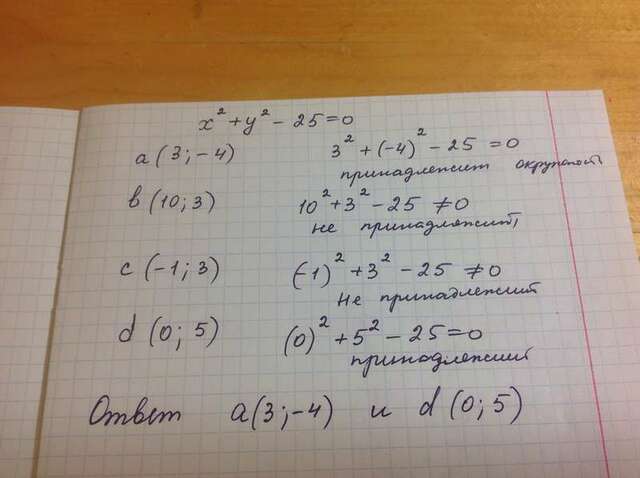 x² + y² - 25 = 0
a (3; -4) 3² + (-4)² - 25 = 0
принадлежит окружност
b (10; 3) 10² + 3² - 25 ≠ 0
не принадлежит,
c (-1; 3) (-1)² + 3² - 25 ≠ 0
Не принадлежит
d (0; 5) (0)² + 5² - 25 = 0
принадлежит
Ответ a (3; -4) и d (0; 5)